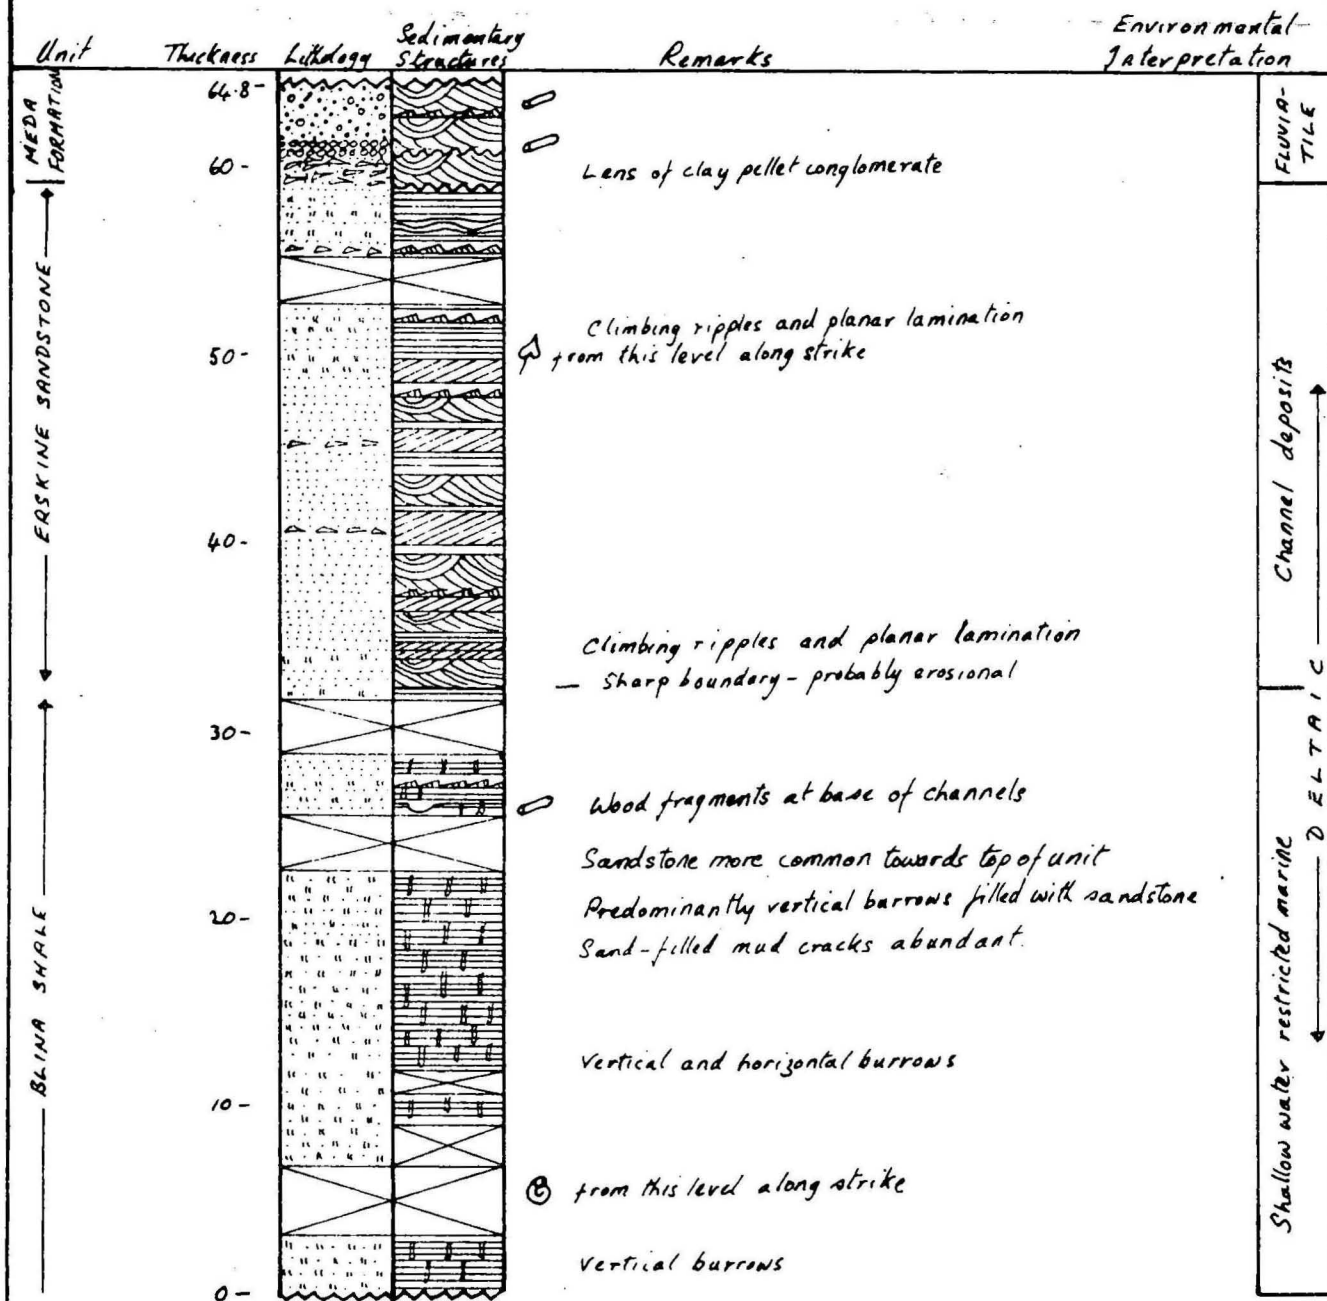 Unit Thickness Lithology Sedimentary Structures Remarks Environmental Interpretation
MEDA FORMATION
ERSKINE SANDSTONE
BLINA SHALE
64.8-
60-
50-
40-
30-
20-
10-
0-
Lens of clay pellet conglomerate
Climbing ripples and planar lamination
from this level along strike
Climbing ripples and planar lamination
— Sharp boundary - probably erosional
Wood fragments at base of channels
Sandstone more common towards top of unit
Predominantly vertical burrows filled with sandstone
Sand-filled mud cracks abundant.
Vertical and horizontal burrows
from this level along strike
Vertical burrows
FLUVIA-
TILE
Channel deposits
Shallow water restricted marine
DELTAIC